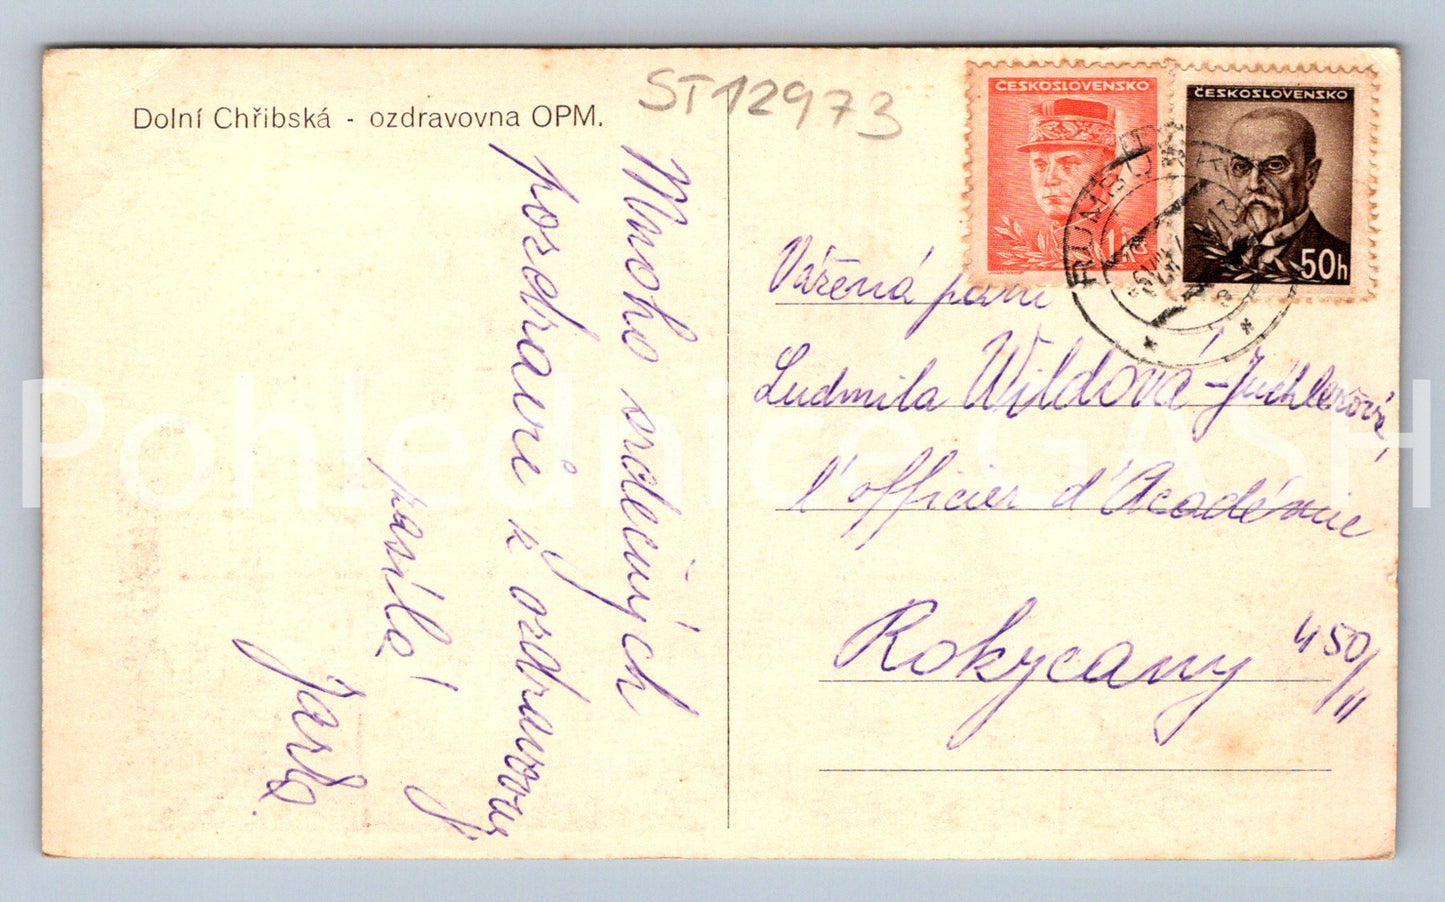 Dolní Chřibská - ozdravovna OPM.
ST12973
Mnoho srdečných
pozdravů z ozdravovny
posílá
Jarka.
ČESKOSLOVENSKO
1K
ČESKOSLOVENSKO
50h
RUMBURK
Vážená paní
Ludmila Wildová-
l'officier d'Académie
Rokycany 450/II
Pohlednice GASH